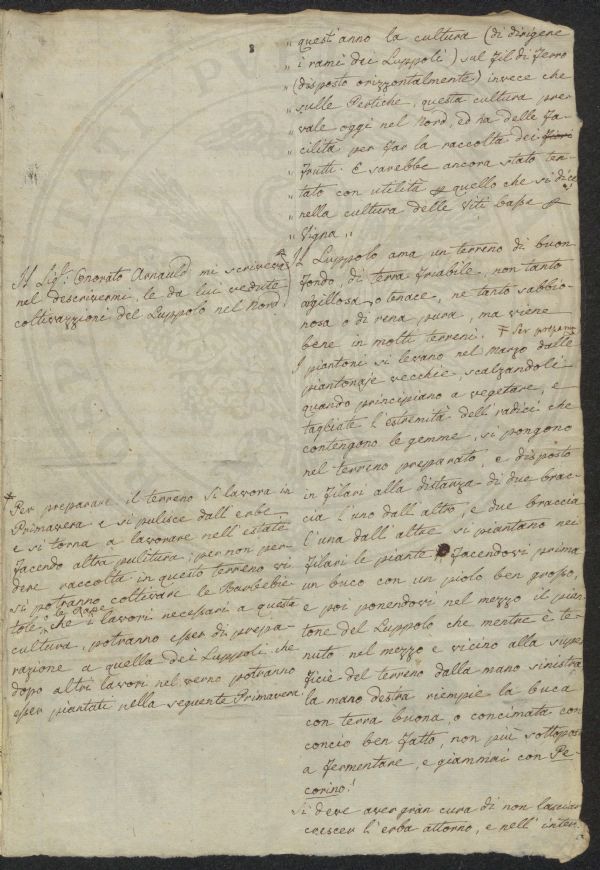 „ quest'anno la cultura (di dirigere
„ i rami dei Luppoli) sul fil di ferro
„ (disposto orizzontalmente) invece che
„ sulle Pertiche, questa cultura pre-
„ vale oggi nel Nord, ed ha delle fa-
„ cilità per far la raccolta dei Fiori
„ frutti. E sarebbe ancora stato ten-
„ tato con utilità p quello che si dice
„ nella cultura delle Viti basse p
„ Vigna.„
Il Luppolo ama un terreno di buon
fondo, di terra friabile, non tanto
argillosa, o tenace, ne tanto sabbio-
nosa o di rena pura, ma viene
bene in molti terreni. Per preparar
I piantoni si levano nel Marzo dalle
piantonaje vecchie, scalzandoli
quando principiano a vegetare, e
tagliate l'estremità dell radici che
contengono le gemme, si pongono
nel terreno preparato, e disposto
in filari alla distanza di due brac-
cia l'uno dall'altro, e due braccia
l'una dall'altre si piantano nei
filari le piante facendovi prima
un buco con un piolo ben grosso,
e poi ponendovi nel mezzo il pian-
tone del Luppolo che mentre è te-
nuto nel mezzo e vicino alla super
ficie del terreno dalla mano sinistra
la mano destra riempie la buca
con terra buona, o concimata con
concio ben fatto, non più sottoposto
a fermentare, e giammai con Pe-
corino!
Si deve aver gran cura di non lasciar
crescer l'erba attorno, e nell'inter-
Il Sig.r Onorato Arnauld mi scriveva
nel descrivermi, le da lui vedute
coltivazzioni del Luppolo nel Nord.
* Per preparare il terreno si lavora in
Primavera e si pulisce dall'erbe
e si torna a lavorare nell'estate
facendo altra pulitura; per non per-
dere raccolta in questo terreno vi
si potranno coltivare le Barbebie-
tole, o le Rape che i lavori necessari a questa
cultura, potranno esser di prepa-
razione a quella dei Luppoli, che
dopo altri lavori nel verno potranno
esser piantati nella seguente Primavera.